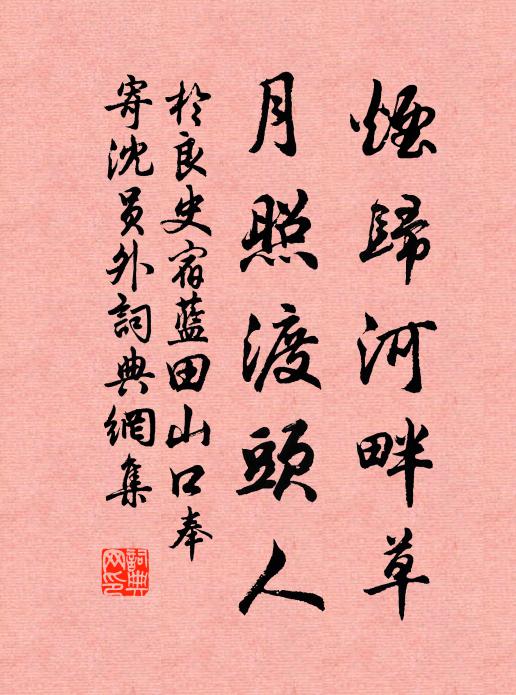 煙歸河畔草
月照渡頭人
於良史宿藍田山口奉
寄沈員外詞典網集
詞典網印